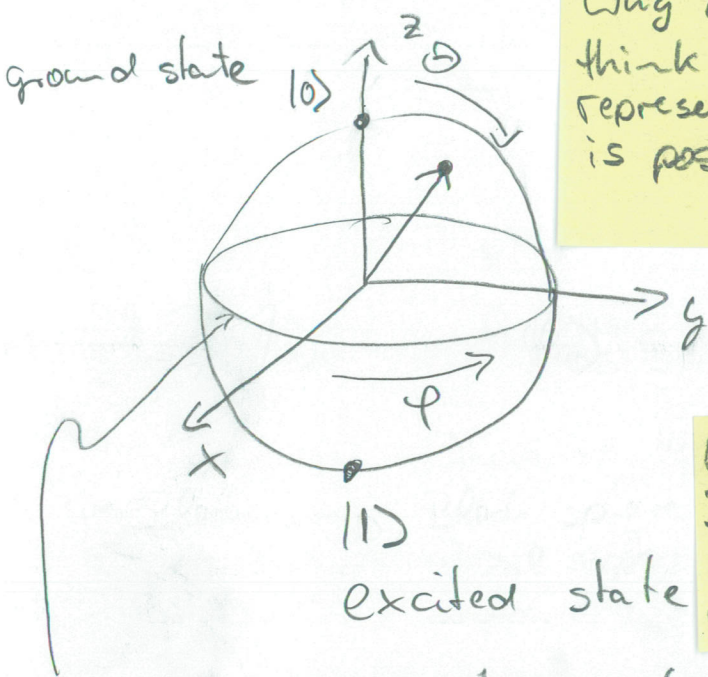 z
ground state |0⟩
Θ
think
represe
is pos
y
φ
x
|1⟩
excited state